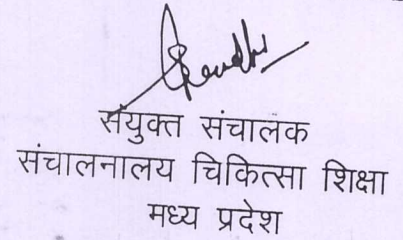 संयुक्त संचालक
संचालनालय चिकित्सा शिक्षा
मध्य प्रदेश